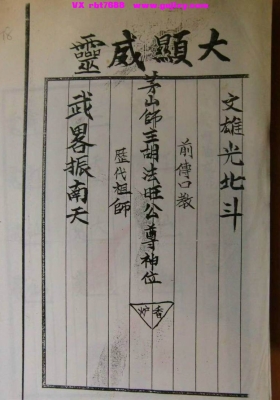 VX rbt7088
大顯威靈
文雄光北斗
前傳口教
茅山師主胡法旺公尊神位
歷代祖師
香炉
武畧振南天